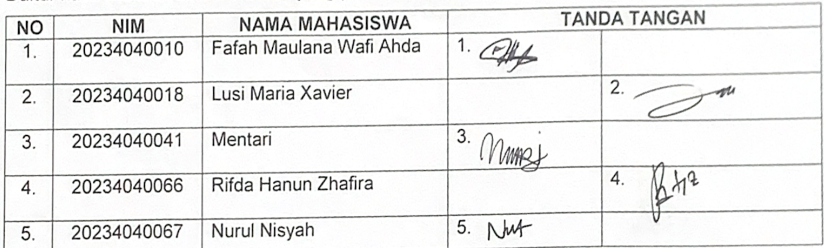 NO NIM NAMA MAHASISWA TANDA TANGAN
1. 20234040010 Fafah Maulana Wafi Ahda 1.
2. 20234040018 Lusi Maria Xavier 2.
3. 20234040041 Mentari 3.
4. 20234040066 Rifda Hanun Zhafira 4.
5. 20234040067 Nurul Nisyah 5.